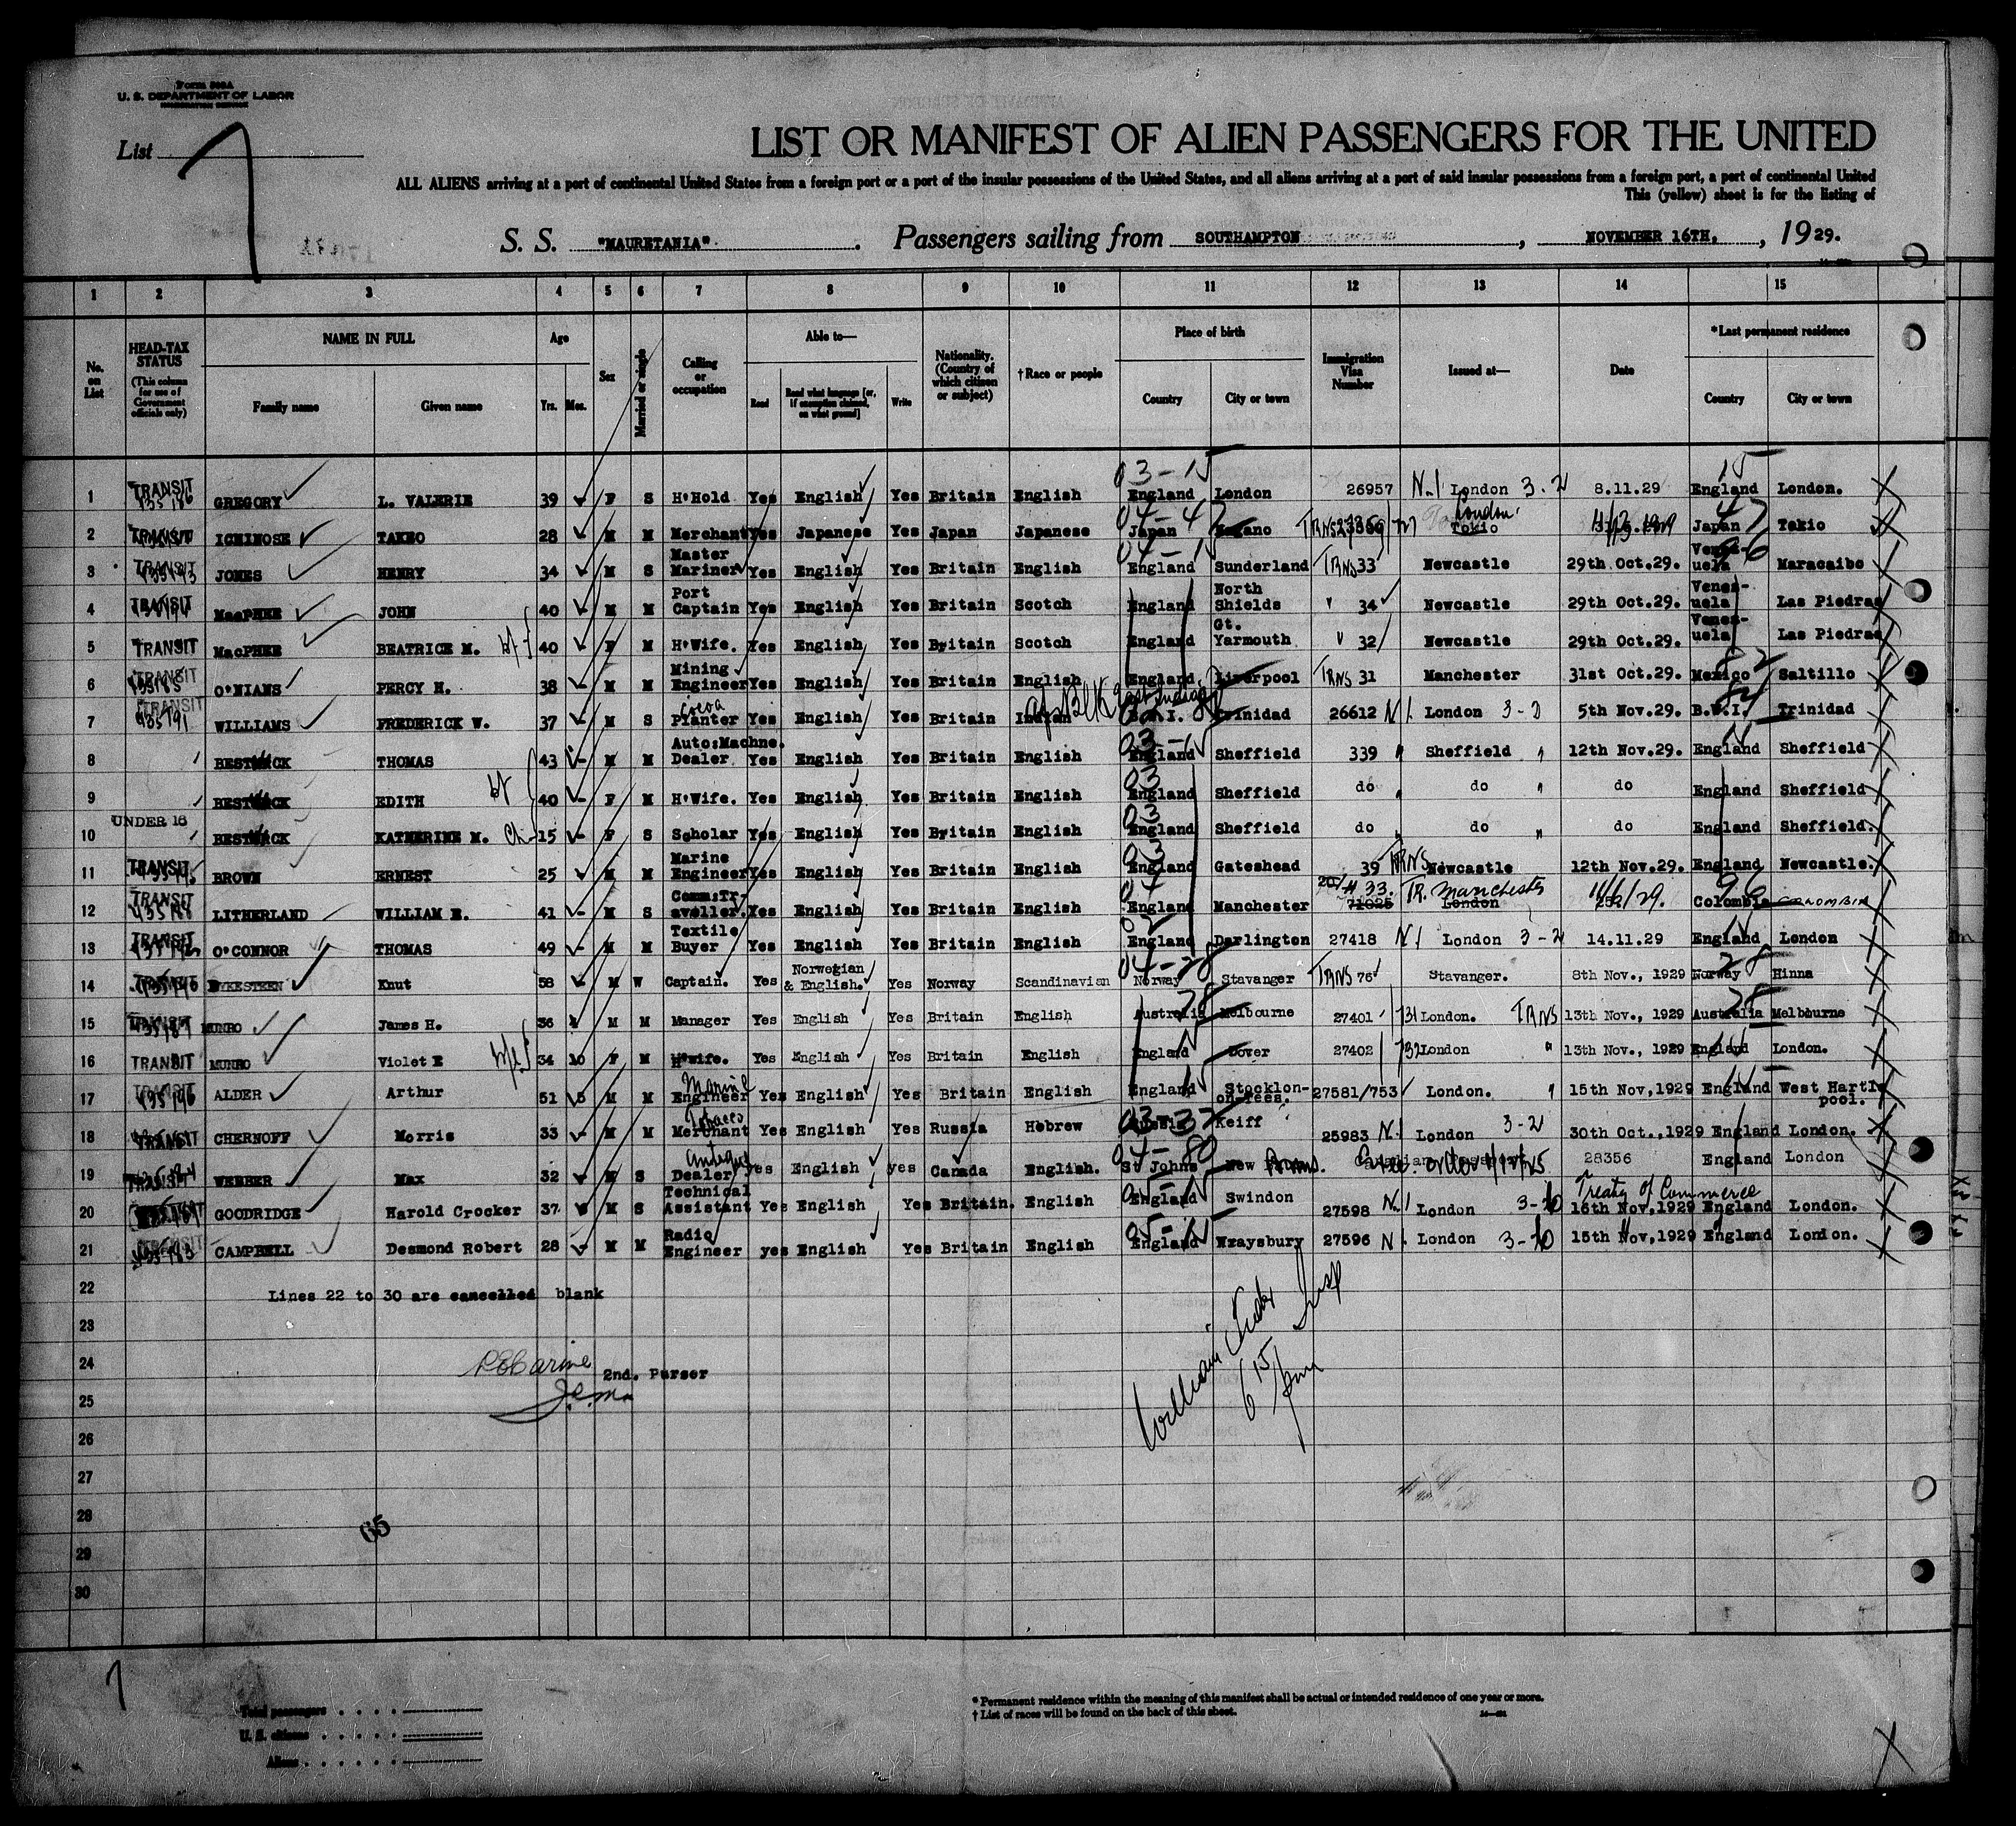 Form 500A
U. S. DEPARTMENT OF LABOR
IMMIGRATION SERVICE
List 7
LIST OR MANIFEST OF ALIEN PASSENGERS FOR THE UNITED
ALL ALIENS arriving at a port of continental United States from a foreign port or a port of the insular possessions of the United States, and all aliens arriving at a port of said insular possessions from a foreign port, a port of continental United
This (yellow) sheet is for the listing of
S. S. "MAURETANIA". Passengers sailing from SOUTHAMPTON, NOVEMBER 16TH, , 1929.
1 2 3 4 5 6 7 8 9 10 11 12 13 14 15
No. on List
HEAD-TAX STATUS (This column for use of Government officials only)
NAME IN FULL Family name Given name
Age Yrs. Mos.
Sex
Married or single
Calling or occupation
Able to— Read Read what language [or, if exemption claimed, on what ground] Write
Nationality. (Country of which citizen or subject)
†Race or people
Place of birth Country City or town
Immigration Visa Number
Issued at—
Date
*Last permanent residence Country City or town
03-15 15
1 TRANSIT GREGORY L. VALERIE 39 F S H'Hold Yes English Yes Britain English England London 26957 N.1 London 3-2 8.11.29 England London.
2 TRANSIT ICHINOSE TAKEO 28 M M Merchant Yes Japanese Yes Japan Japanese Japan TRNS London Tokio Japan Tokio
3 TRANSIT JONES HENRY 34 M S Master Mariner Yes English Yes Britain English England Sunderland TRNS 33 Newcastle 29th Oct.29. Venez-uela Maracaibo
4 TRANSIT MacPHEE JOHN 40 M M Port Captain Yes English Yes Britain Scotch England North Shields 34 Newcastle 29th Oct.29. Venez-uela Las Piedras
5 TRANSIT MacPHEE BEATRICE M. 40 F M H'Wife. Yes English Yes Britain Scotch England Gt. Yarmouth 32 Newcastle 29th Oct.29. Venez-uela Las Piedras
6 TRANSIT O'NIANS PERCY H. 38 M M Mining Engineer Yes English Yes Britain English England Liverpool TRNS 31 Manchester 31st Oct.29. Mexico Saltillo
7 TRANSIT WILLIAMS FREDERICK W. 37 M S cocoa Planter Yes English Yes Britain East Indian B.W.I. Trinidad 26612 N1. London 3-2 5th Nov.29. B.W.I. Trinidad
8 BESTWICK THOMAS 43 M M Auto:Machne. Dealer Yes English Yes Britain English England Sheffield 339 Sheffield 12th Nov.29. England Sheffield
9 BESTWICK EDITH 40 F M H'Wife. Yes English Yes Britain English England Sheffield do do do England Sheffield
UNDER 16
10 BESTWICK KATHERINE M. 15 F S Scholar Yes English Yes Britain English England Sheffield do do do England Sheffield.
11 TRANSIT BROWN ERNEST 25 M M Marine Engineer Yes English Yes Britain English England Gateshead 39 TRNS Newcastle 12th Nov.29. England Newcastle.
12 TRANSIT LITHERLAND WILLIAM E. 41 M S Comm:Tr-aveller. Yes English Yes Britain English England Manchester 433. 71025 TR. Manchester London Colombia COLOMBIA
13 TRANSIT O'CONNOR THOMAS 49 M M Textile Buyer Yes English Yes Britain English England Darlington 27418 N1 London 3-2 14.11.29 England London
14 TRANSIT DYKESTEEN Knut 58 M W Captain. Yes Norwegian & English. Yes Norway Scandinavian Norway Stavanger TRNS 76 Stavanger. 8th Nov., 1929 Norway Hinna
15 TRANSIT MUNRO James H. 36 M M Manager Yes English Yes Britain English Australia Melbourne 27401 731 London. TRNS 13th Nov., 1929 Australia Melbourne
16 TRANSIT MUNRO Violet E wife 34 10 F M H'wife. Yes English Yes Britain English England Dover 27402 732 London 13th Nov., 1929 England London.
17 TRANSIT ALDER Arthur 51 5 M M Marine Engineer Yes English Yes Britain English England Stockton-on-Tees. 27581/753 London. 15th Nov,1929 England West Hartlepool.
18 TRANSIT CHERNOFF Morris 33 M M Tobacco Merchant Yes English Yes Russia Hebrew Russia Keiff 25983 N1 London 3-2 30th Oct.,1929 England London.
19 TRANSIT WEBBER Max 32 M S Antique Dealer yes English yes Canada English. St Johns New 28356 England London
20 TRANSIT GOODRIDGE Harold Crocker 37 M S Technical Assistant Yes English Yes Britain. English England Swindon 27598 N.1 London 3-10 Treaty of Commerce 15th Nov,1929 England London.
21 TRANSIT CAMPBELL Desmond Robert 28 M M Radio Engineer yes English Yes Britain English England Wraysbury 27596 N1. London 3-10 15th Nov,1929 England London.
22 Lines 22 to 30 are cancelled blank
23
24 2nd. Purser
25
26
27
28
29
30
65
7
Total passengers
U. S. citizens
Aliens
* Permanent residence within the meaning of this manifest shall be actual or intended residence of one year or more.
† List of races will be found on the back of this sheet.